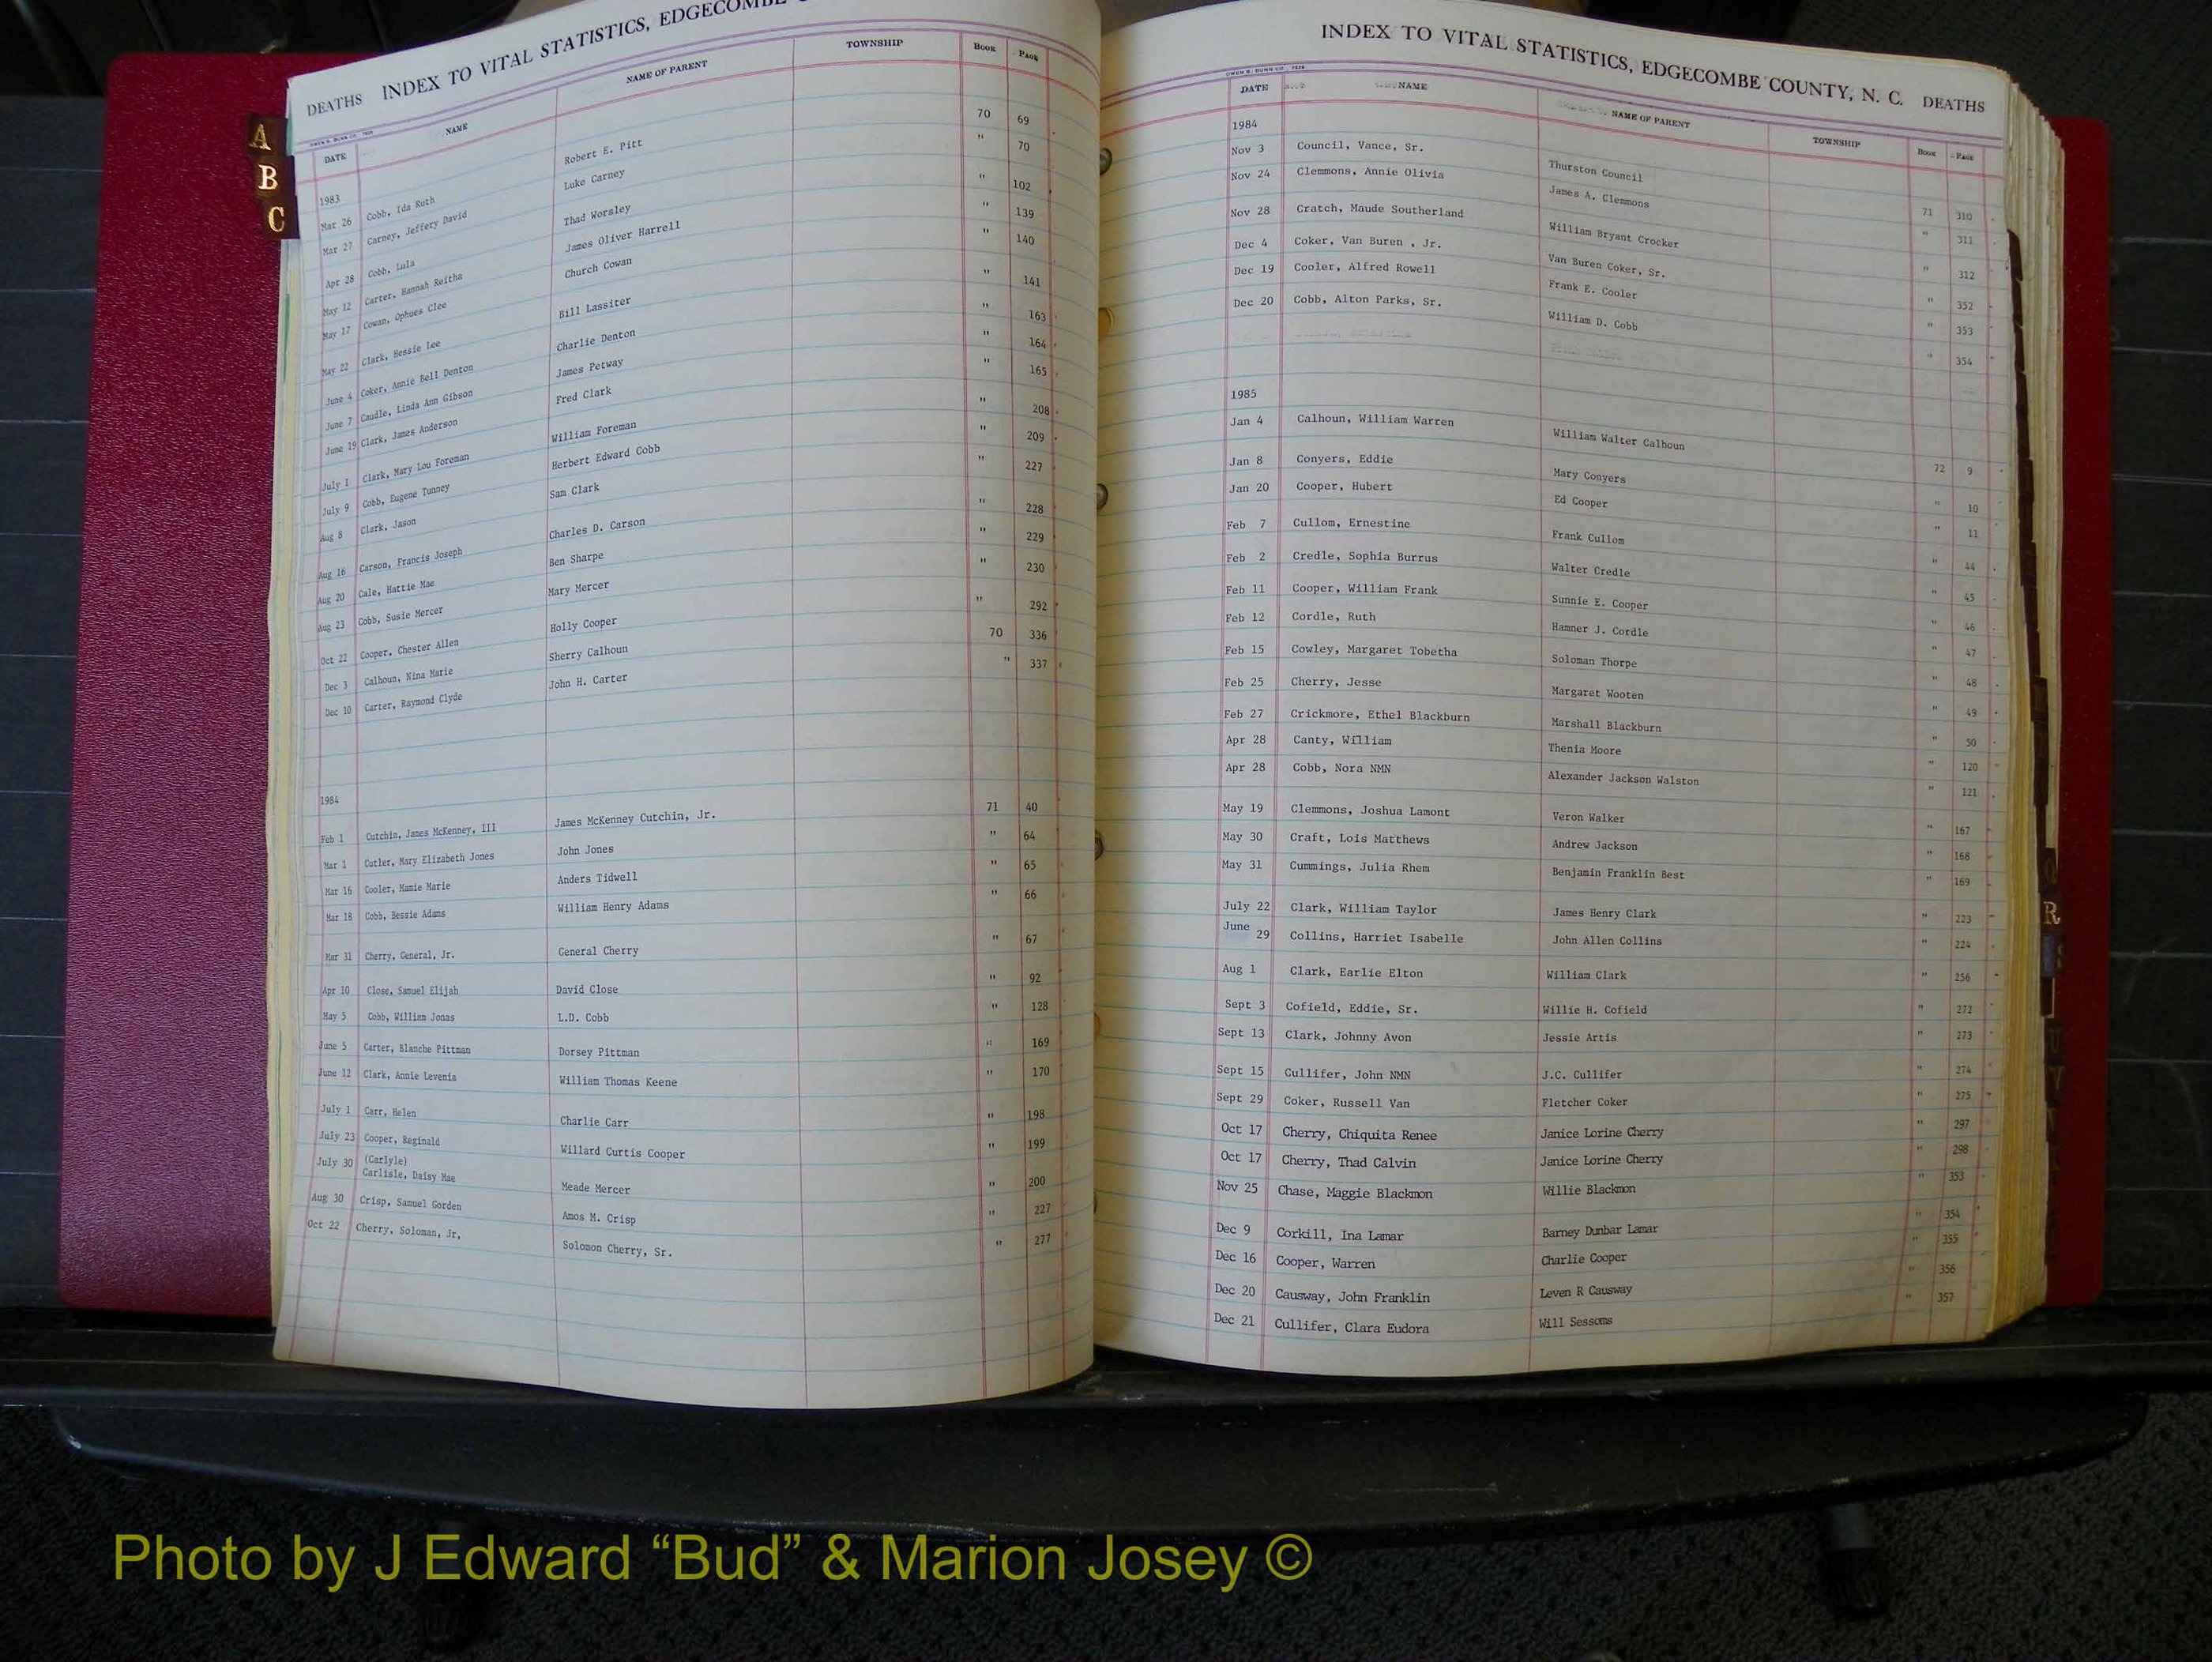 DEATHS INDEX TO VITAL STATISTICS, EDGECOMBE
DATE NAME NAME OF PARENT TOWNSHIP BOOK PAGE
1983
Mar 26 Cobb, Ida Ruth Robert E. Pitt 70 69
Mar 27 Carney, Jeffery David Luke Carney " 70
Apr 28 Cobb, Lula Thad Worsley " 102
May 12 Carter, Hannah Reitha James Oliver Harrell " 139
May 17 Cowan, Ophues Clee Church Cowan " 140
May 22 Clark, Bessie Lee Bill Lassiter " 141
June 4 Coker, Annie Bell Denton Charlie Denton " 163
June 7 Caudle, Linda Ann Gibson James Petway " 164
June 19 Clark, James Anderson Fred Clark " 165
July 1 Clark, Mary Lou Foreman William Foreman " 208
July 9 Cobb, Eugene Tunney Herbert Edward Cobb " 209
Aug 8 Clark, Jason Sam Clark " 227
Aug 16 Carson, Francis Joseph Charles D. Carson " 228
Aug 20 Cale, Hattie Mae Ben Sharpe " 229
Aug 23 Cobb, Susie Mercer Mary Mercer " 230
Oct 22 Cooper, Chester Allen Holly Cooper " 292
Dec 3 Calhoun, Nina Marie Sherry Calhoun 70 336
Dec 10 Carter, Raymond Clyde John H. Carter " 337
1984
Feb 1 Cutchin, James McKenney, III James McKenney Cutchin, Jr. 71 40
Mar 1 Cutler, Mary Elizabeth Jones John Jones " 64
Mar 16 Cooler, Mamie Marie Anders Tidwell " 65
Mar 18 Cobb, Bessie Adams William Henry Adams " 66
Mar 31 Cherry, General, Jr. General Cherry " 67
Apr 10 Close, Samuel Elijah David Close " 92
May 5 Cobb, William Jonas L.D. Cobb " 128
June 5 Carter, Blanche Pittman Dorsey Pittman " 169
June 12 Clark, Annie Levenia William Thomas Keene " 170
July 1 Carr, Helen Charlie Carr " 198
July 23 Cooper, Reginald Willard Curtis Cooper " 199
July 30 (Carlyle)
Carlisle, Daisy Mae Meade Mercer " 200
Aug 30 Crisp, Samuel Gorden Amos M. Crisp " 227
Oct 22 Cherry, Soloman, Jr, Solomon Cherry, Sr. " 277
INDEX TO VITAL STATISTICS, EDGECOMBE COUNTY, N. C. DEATHS
DATE NAME NAME OF PARENT TOWNSHIP BOOK PAGE
1984
Nov 3 Council, Vance, Sr. Thurston Council 71 310
Nov 24 Clemmons, Annie Olivia James A. Clemmons " 311
Nov 28 Cratch, Maude Southerland William Bryant Crocker " 312
Dec 4 Coker, Van Buren , Jr. Van Buren Coker, Sr. " 352
Dec 19 Cooler, Alfred Rowell Frank E. Cooler " 353
Dec 20 Cobb, Alton Parks, Sr. William D. Cobb " 354
1985
Jan 4 Calhoun, William Warren William Walter Calhoun 72 9
Jan 8 Conyers, Eddie Mary Conyers " 10
Jan 20 Cooper, Hubert Ed Cooper " 11
Feb 7 Cullom, Ernestine Frank Cullom " 44
Feb 2 Credle, Sophia Burrus Walter Credle " 45
Feb 11 Cooper, William Frank Sunnie E. Cooper " 46
Feb 12 Cordle, Ruth Hamner J. Cordle " 47
Feb 15 Cowley, Margaret Tobetha Soloman Thorpe " 48
Feb 25 Cherry, Jesse Margaret Wooten " 49
Feb 27 Crickmore, Ethel Blackburn Marshall Blackburn " 50
Apr 28 Canty, William Thenia Moore " 120
Apr 28 Cobb, Nora NMN Alexander Jackson Walston " 121
May 19 Clemmons, Joshua Lamont Veron Walker " 167
May 30 Craft, Lois Matthews Andrew Jackson " 168
May 31 Cummings, Julia Rhem Benjamin Franklin Best " 169
July 22 Clark, William Taylor James Henry Clark " 223
June 29 Collins, Harriet Isabelle John Allen Collins " 224
Aug 1 Clark, Earlie Elton William Clark " 256
Sept 3 Cofield, Eddie, Sr. Willie H. Cofield " 272
Sept 13 Clark, Johnny Avon Jessie Artis " 273
Sept 15 Cullifer, John NMN J.C. Cullifer " 274
Sept 29 Coker, Russell Van Fletcher Coker " 275
Oct 17 Cherry, Chiquita Renee Janice Lorine Cherry " 297
Oct 17 Cherry, Thad Calvin Janice Lorine Cherry " 298
Nov 25 Chase, Maggie Blackmon Willie Blackmon " 353
Dec 9 Corkill, Ina Lamar Barney Dunbar Lamar " 354
Dec 16 Cooper, Warren Charlie Cooper " 355
Dec 20 Causway, John Franklin Leven R Causway " 356
Dec 21 Cullifer, Clara Eudora Will Sessoms " 357
A
B
C
R
Photo by J Edward “Bud” & Marion Josey ©